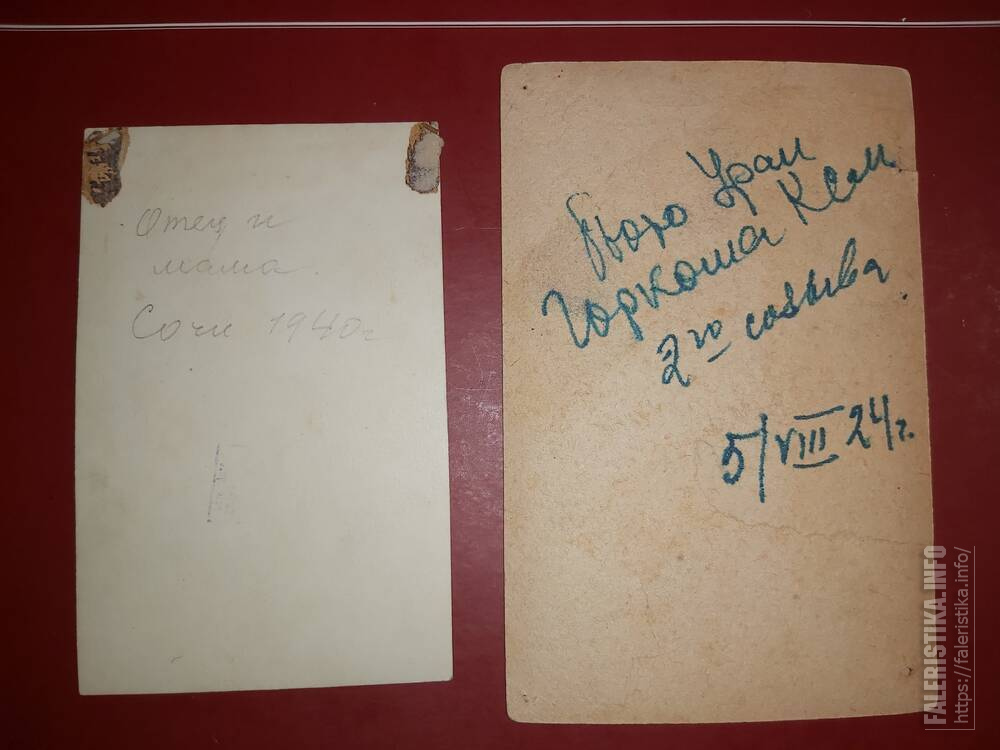 Отец и
мама.
Сочи 1940г
Бюро Уфан
Горкома КСМ
2го созыва.
5/VIII 24г.
FALERISTIKA.INFO
https://faleristika.info/